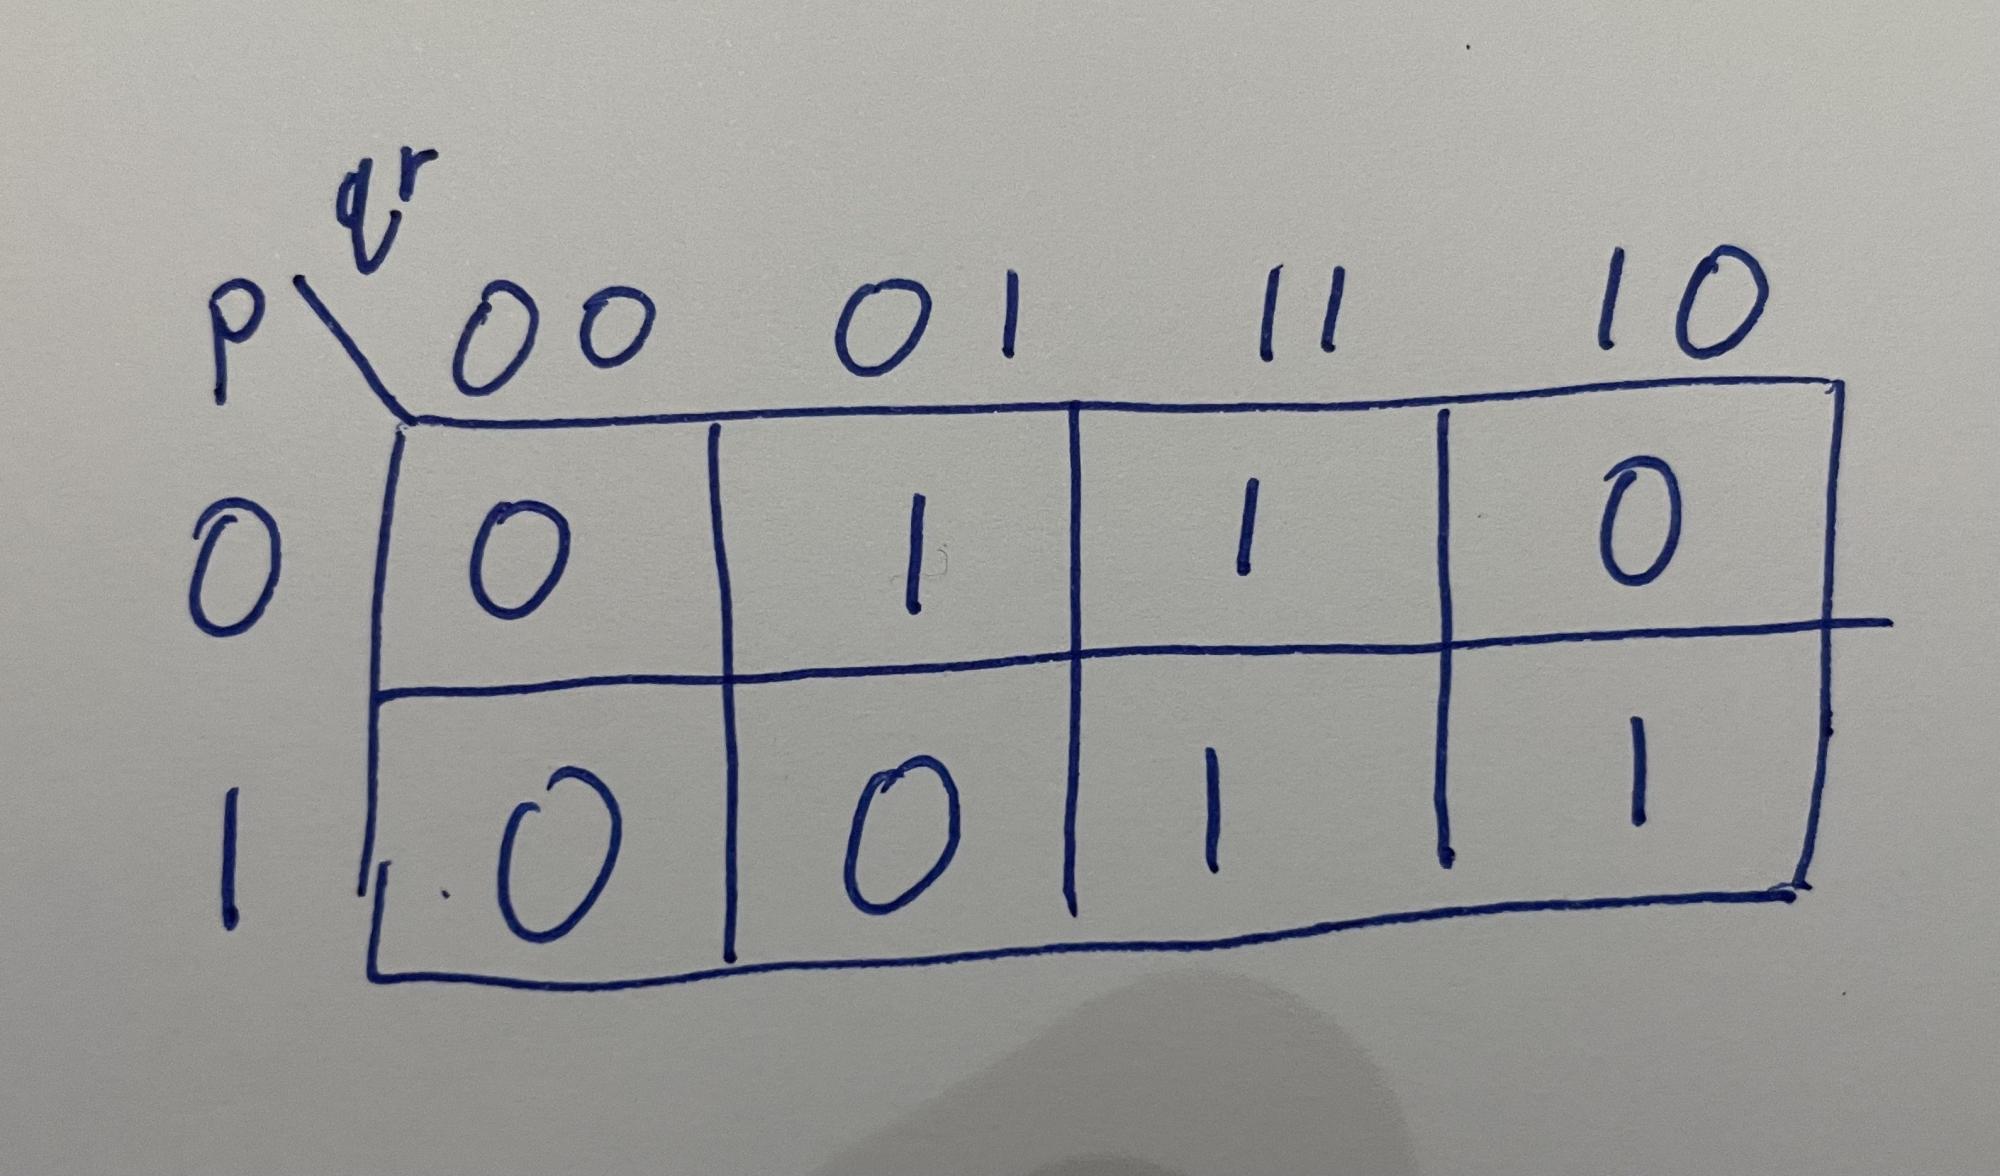 qr
p 00 01 11 10
0 0 1 1 0
1 0 0 1 1